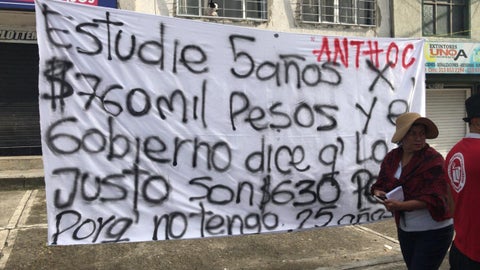 Estudie 5 años x
ANTHOC
$760mil Pesos y e
Gobierno dice q' Lo
Justo son $630
Porq' no tengo 25 años
EXTINTORES